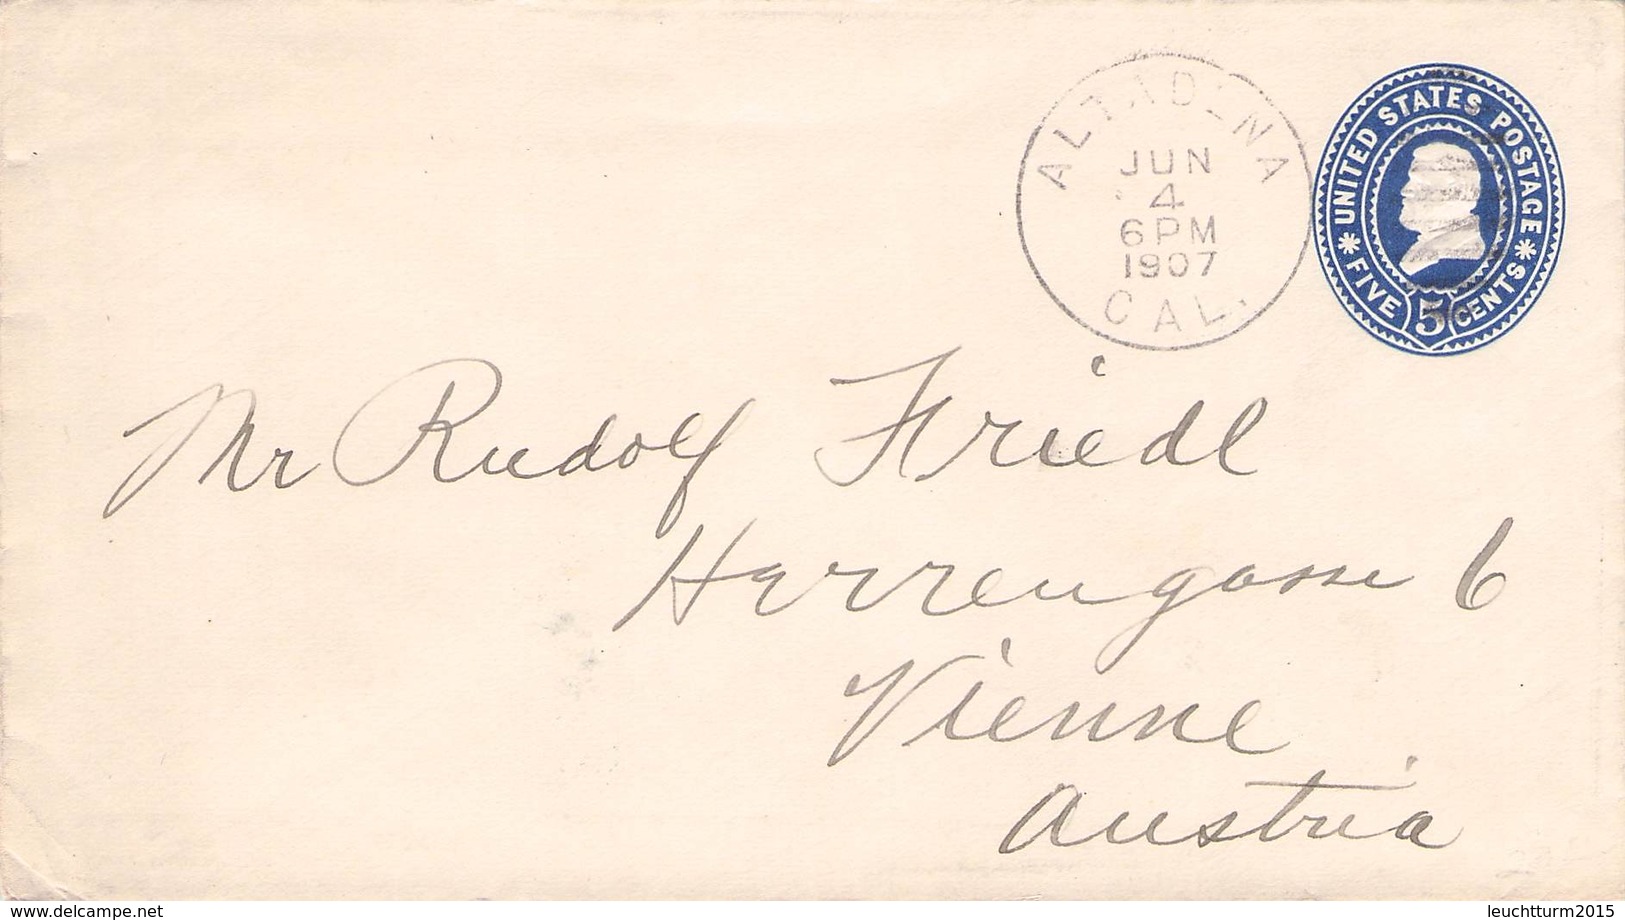 ALTADENA
JUN
4
6PM
1907
CAL.
UNITED STATES POSTAGE
FIVE 5 CENTS
Mr Rudolf Friedl
Herrengasse 6
Vienne
Austria
www.delcampe.net
leuchtturm2015